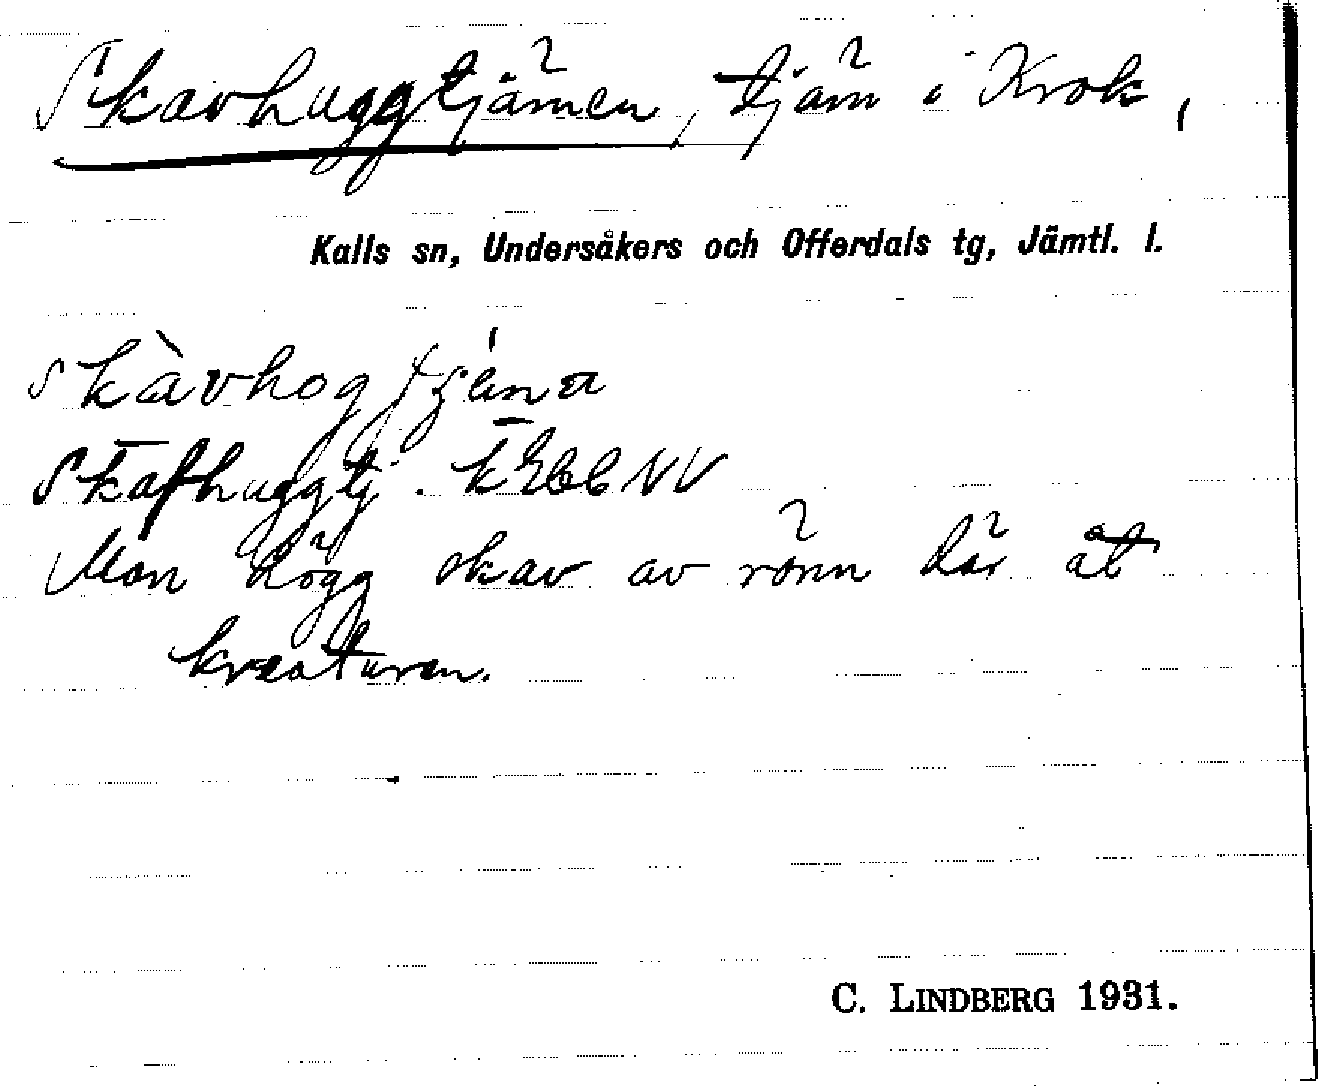 Skavhuggtjärnen, tjärn i Krok,
Kalls sn, Undersåkers och Offerdals tg, Jämtl. l.
skàvhogtjéna
Skafhuggtj. k NV
Man högg skav av rönn där åt
kreaturen.
C. LINDBERG 1931.